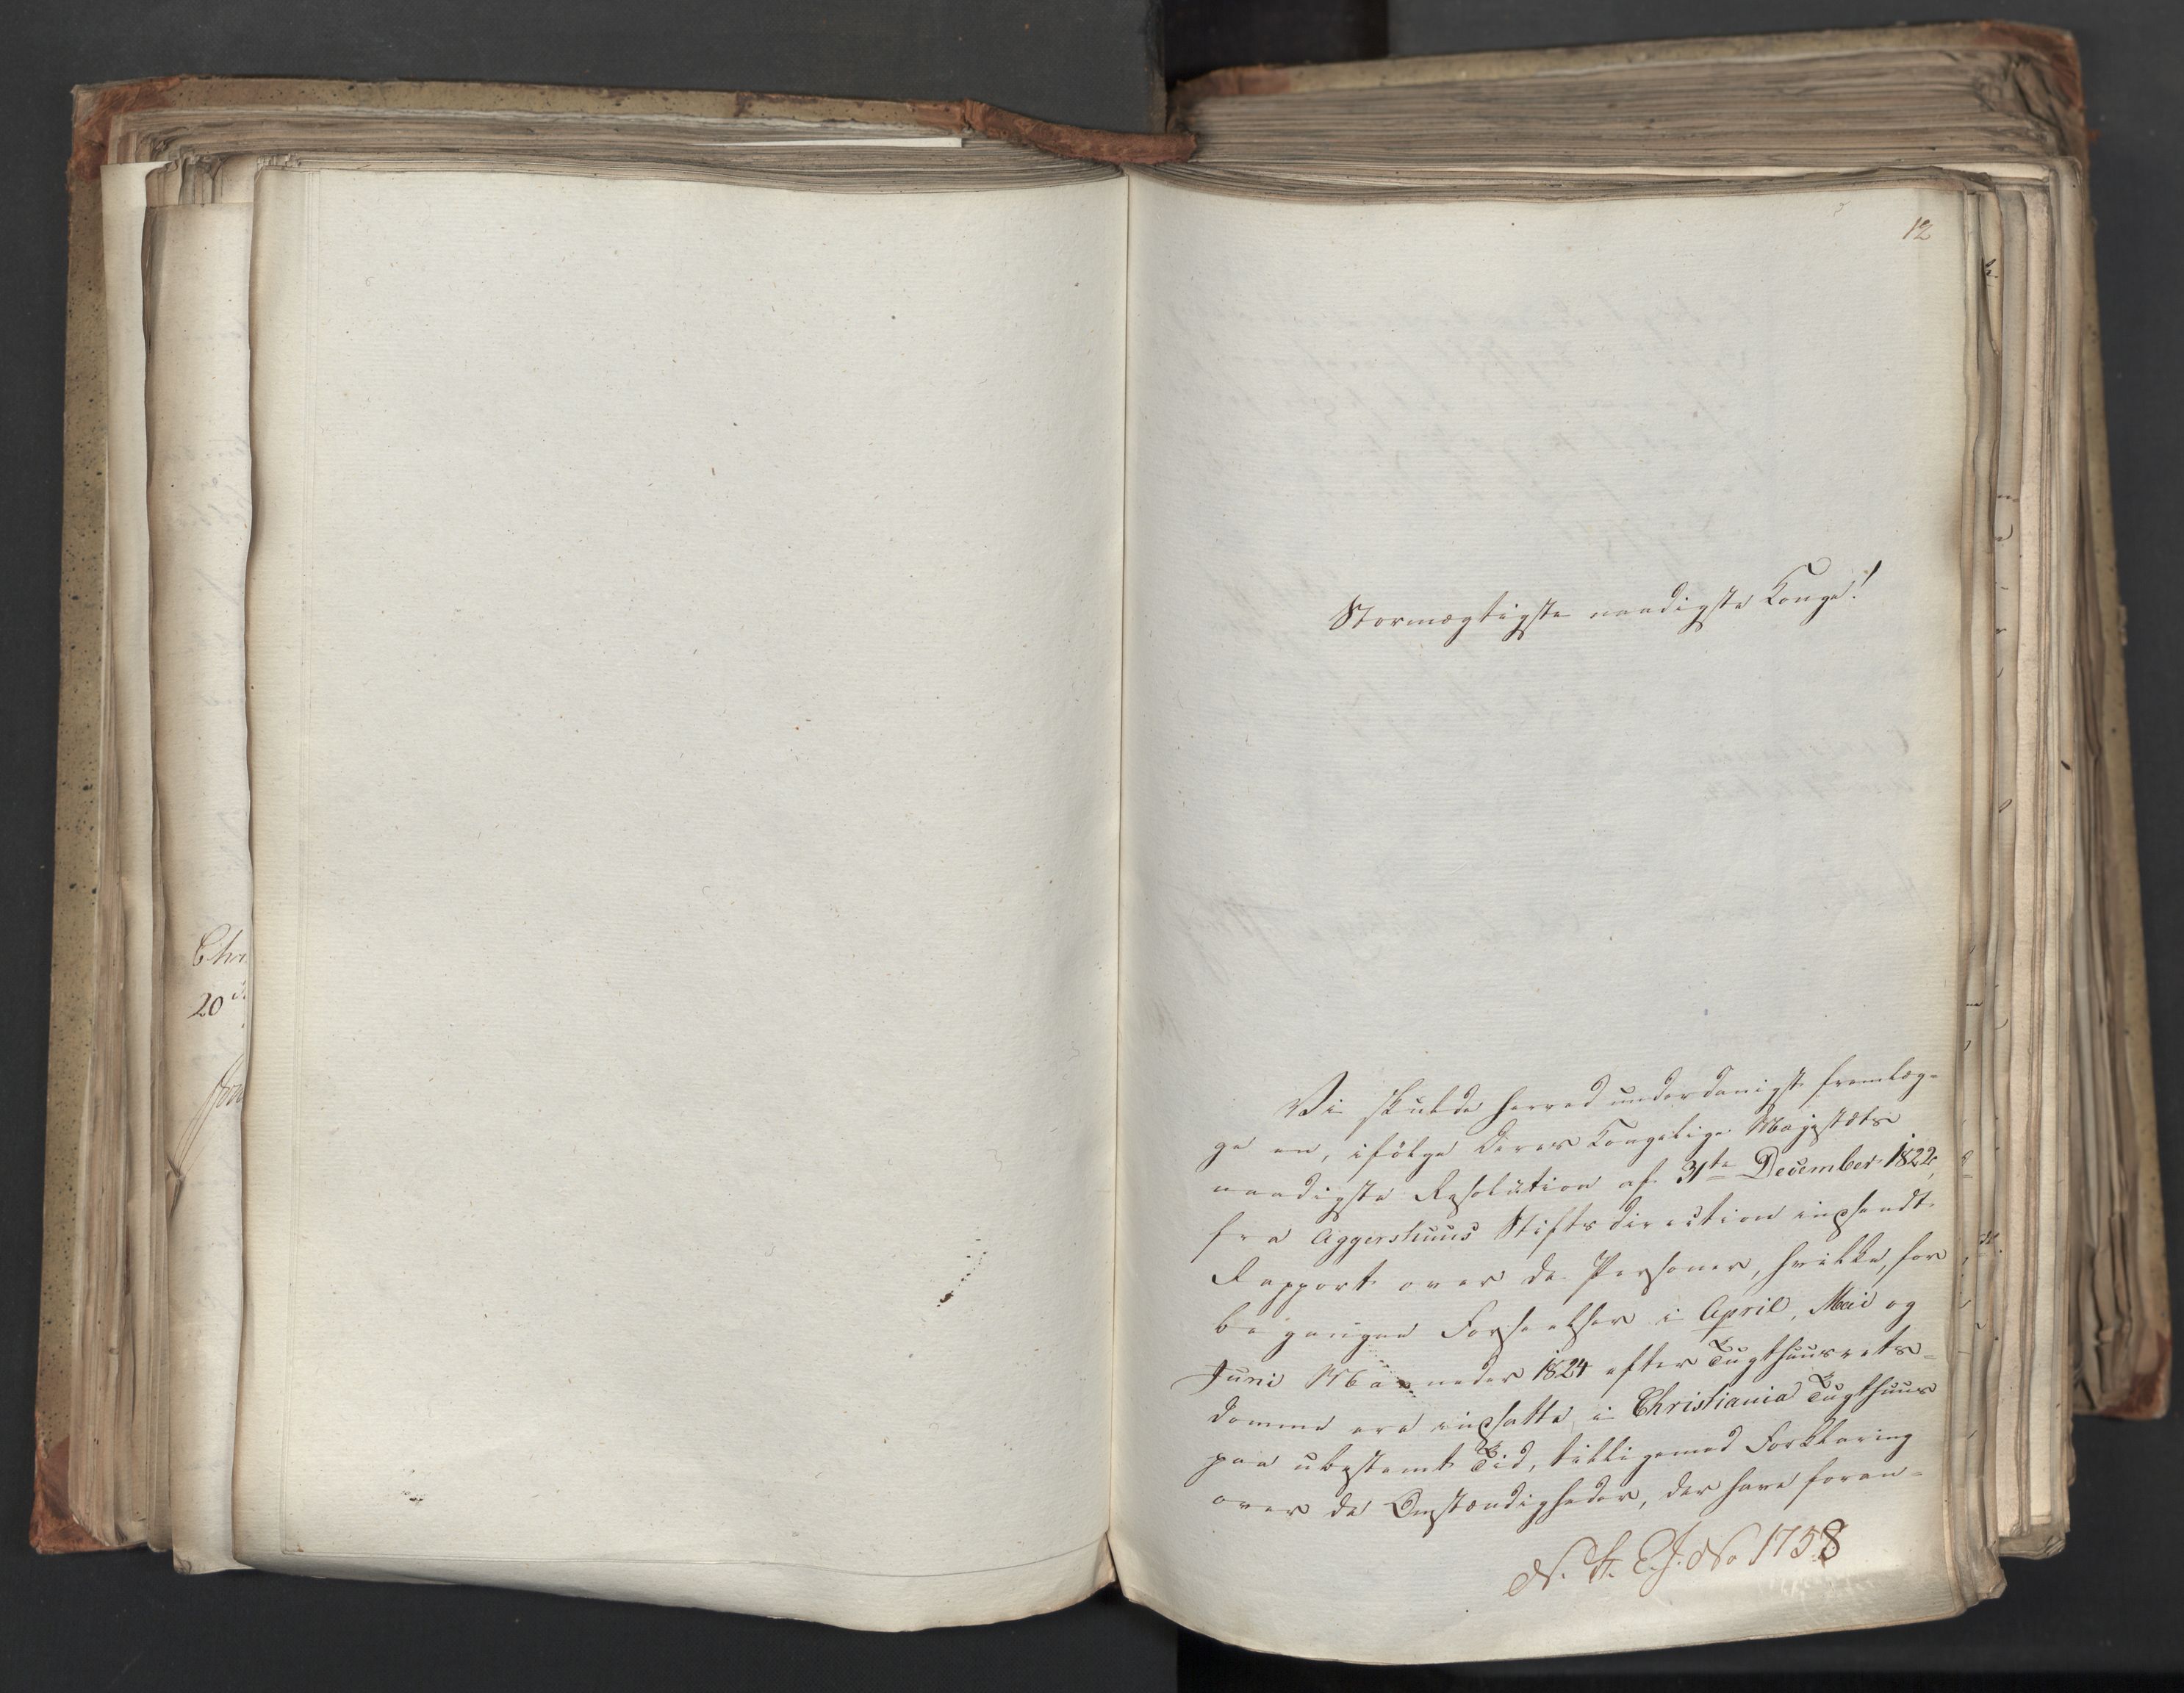 12
Stormægtigste naadigste Konge!
Vi skulde herved underdanigst fremlæg-
ge en, ifölge Deres Kongelige Majestæts
naadigste Resolution af 31te December 1822,
fra Aggershuus Stiftsdirection indsendt
Rapport over de Personer, hvilke, for
begangne Forseelser i April, Mai og
Juni Maaneder 1824 efter Tugthuusrets-
domme ere indsatte i Christiania Tugthuus
paa ubestemt Tid, tilligemed Forklaring
over de Omstændigheder, der have foran-
N. St. E. J. No 1758
Chr
20